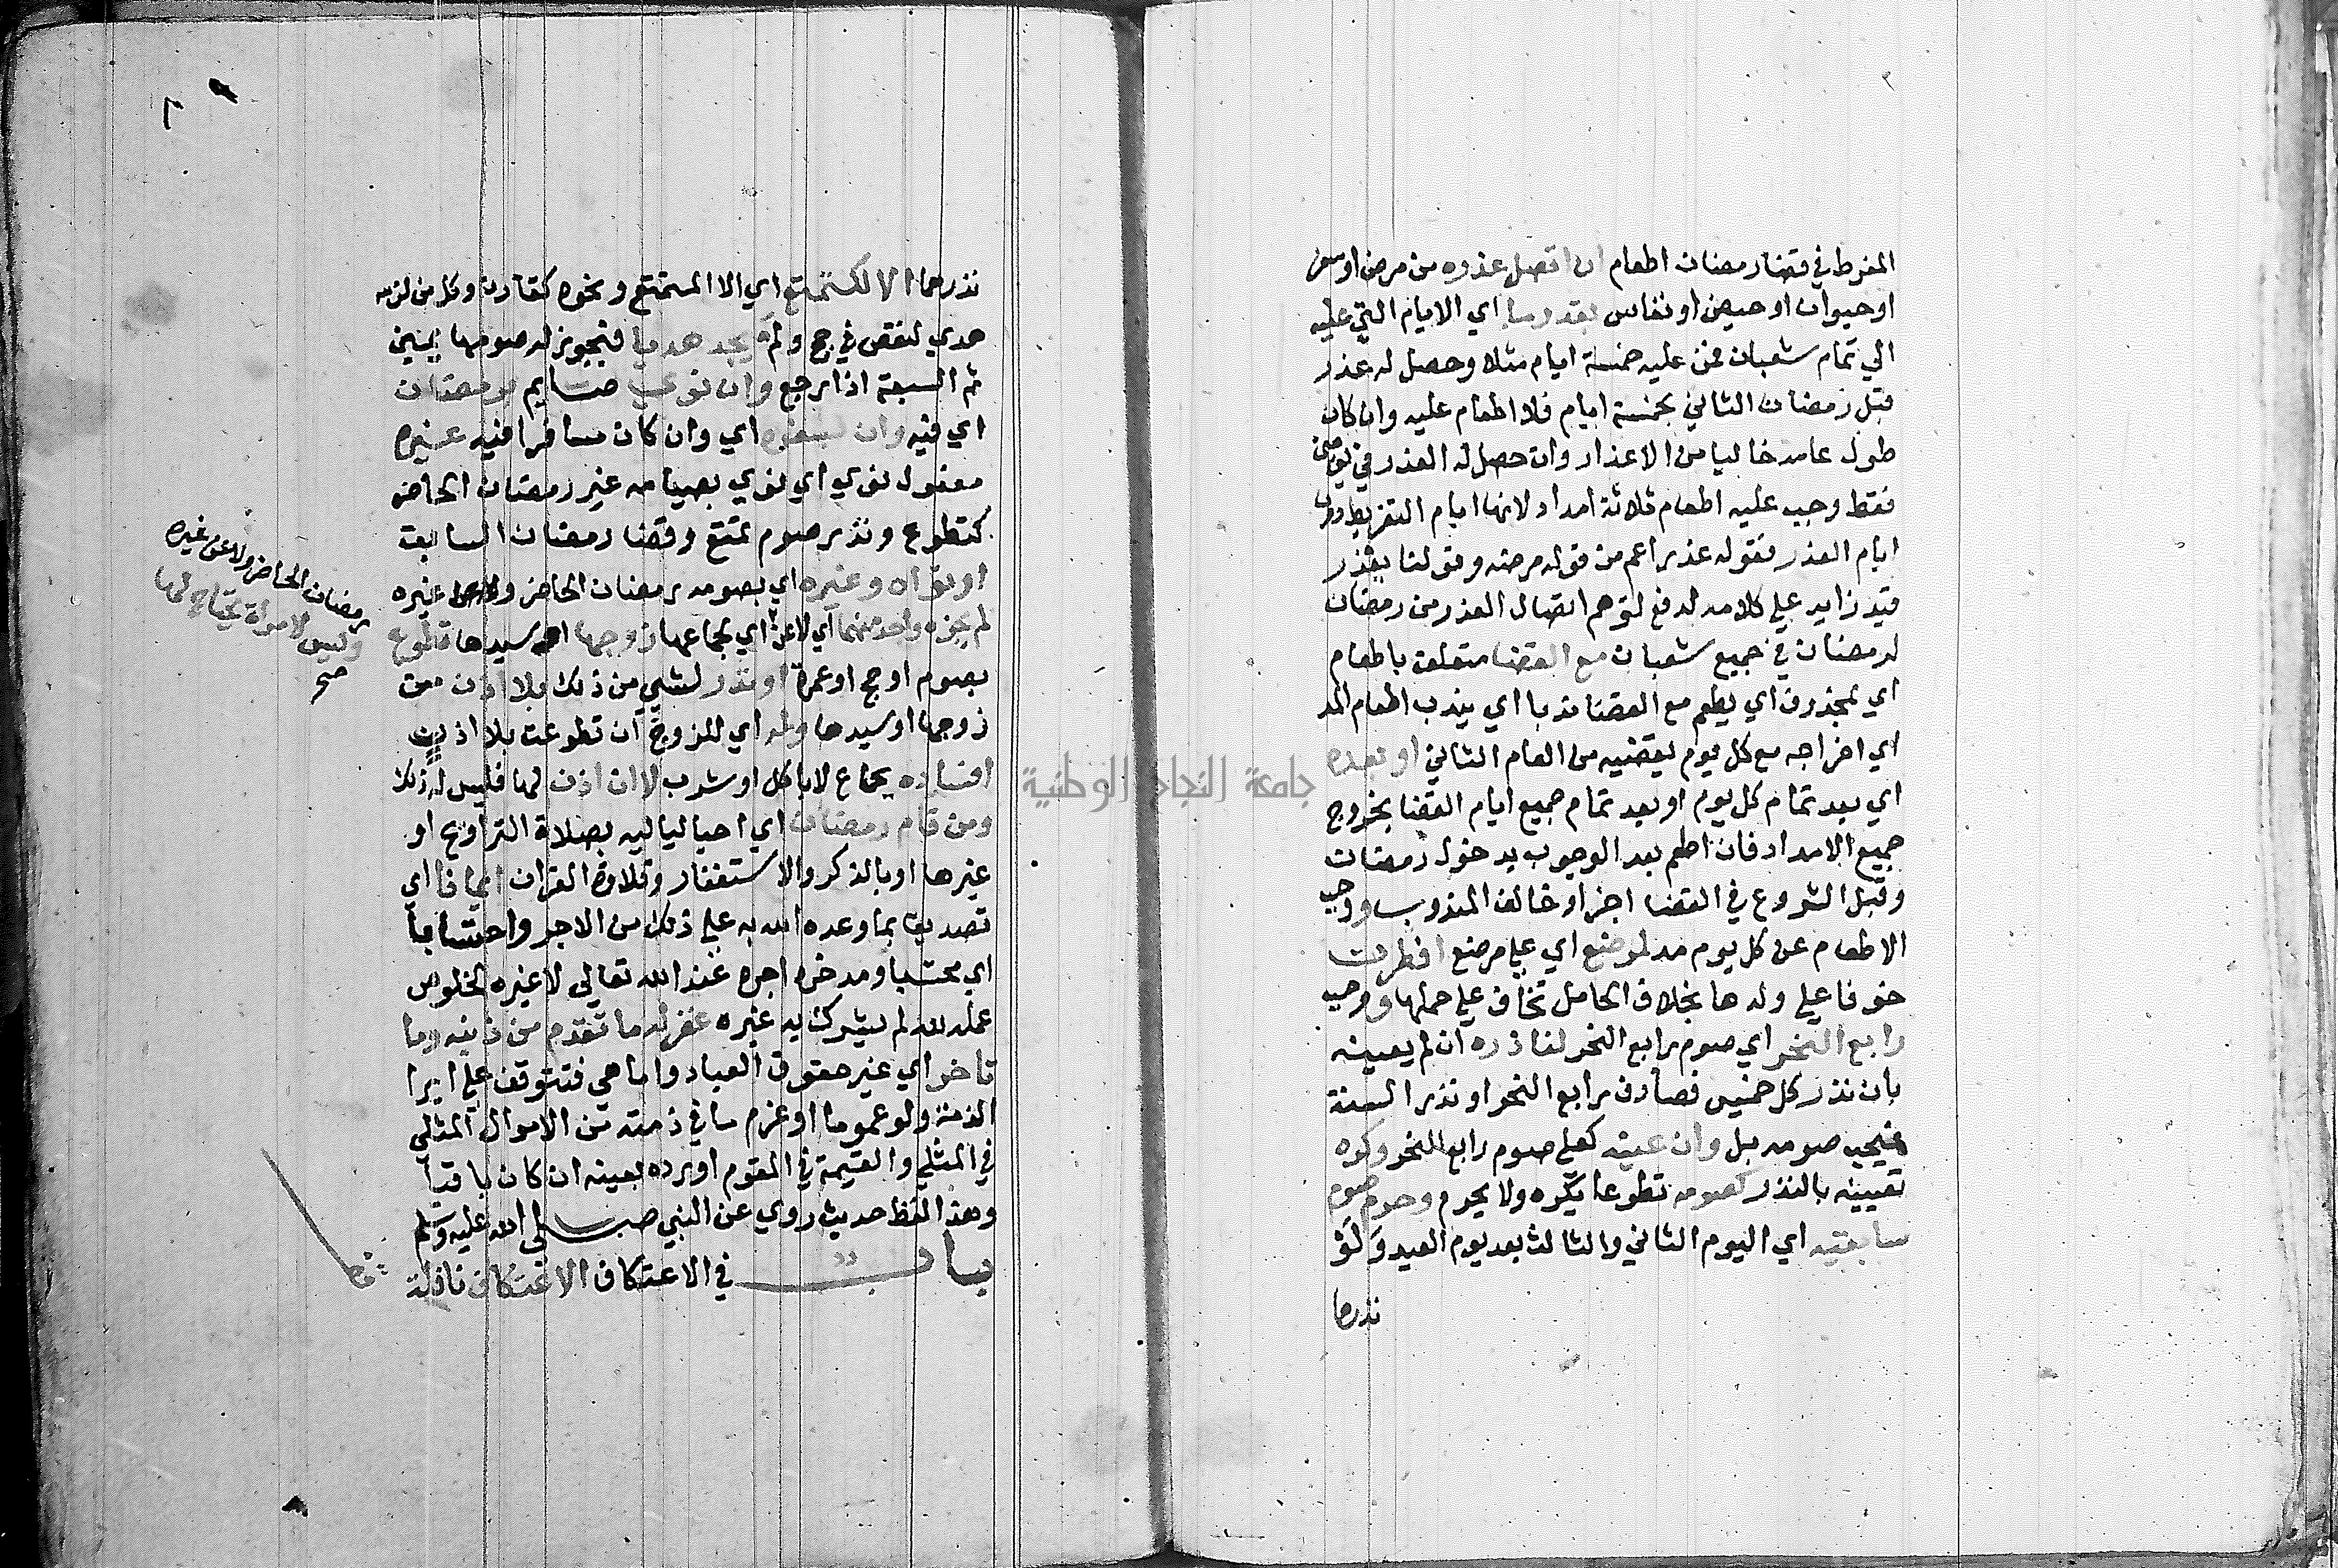 المفرط في قضا رمضان اطعام ان اتصل عذره من مرض او سفر
او حيوان او حيض او نفاس بقدر ما اي الايام التي عليه
الي تمام شعبان فمن عليه خمسة ايام مثلا وحصل له عذر
قبل رمضان الثاني بخمسة ايام فلا اطعام عليه وان كان
طول عامه خاليا من الاعذار وان حصل له العذر في يومين
فقط وجب عليه اطعام ثلاثة امداد لانها ايام التفريط دون
ايام العذر فقوله عذر اعم من قوله مرضه وقولنا بقدر
قيد زايد علي كلامه لدفع توهم اتصال العذر من رمضان
لرمضان في جميع شعبان مع القضا متعلق باطعام
اي بمحذوف اي يطعم مع القضا ندبا اي يندب اطعام المد
اي اخراجه مع كل يوم يقضيه من العام الثاني او بعده
اي بعد تمام كل يوم او بعد تمام جميع ايام القضا بخروج
جميع الامداد فان اطعم بعد الوجوب بدخول رمضان
وقبل الشروع في القضا اجزا وخالف المندوب ووجب
الاطعام عن كل يوم مد لمرضع اي علي مرضع افطرت
خوفا علي ولدها بخلاف الحامل تخاف علي حملها ووجب
رابع النحر اي صوم رابع النحر لناذره ان لم يعينه
بان نذر كل خميس فصادف رابع النحر او نذر السنة
فيجب صومه بل وان عينه كعلي صوم رابع النحر وكره
تعيينه بالنذر كصومه تطوعا يكره ولا يحرم وحرم صوم
سابقيه اي اليوم الثاني والثالث بعد يوم العيد ولو
نذرها
نذرهما الا لكتمتع اي الا المتمتع ونحوه كقارن وكل من لزمه
هدي لنقص في حج ولم يجد هديا فيجوز له صومها بمني
ثم السبعة اذا رجع وان نوي صايم رمضان
اي فيه وان بسفره اي وان كان مسافرا فيه غيره
مفعول نوي اي نوي بصيامه غير رمضان الحاضر
كتطوع ونذر صوم تمتع وقضا رمضان السابق
او نواه وغيره اي بصومه رمضان الحاضر وغيره
لم يجزه واحد منهما اي لا عن اي بجماعها زوجها او سيدها تطوع
بصوم او حج او عمرة او نذر لشي من ذلك بلا اذن من
زوجها او سيدها وله اي للزوج ان تطوعت بلا اذن
افساده بجماع لا باكل او شرب لا ان اذن لها فليس له ذلك
ومن قام رمضان اي احيا لياليه بصلاة التراويح او
غيرها او بالذكر والاستغفار وتلاوة القران ايمانا اي
تصديقا بما وعده الله به علي ذلك من الاجر واحتسابا
اي محتسبا ومدخرا اجره عند الله تعالي لا غيره لخلوص
عمله لله لم يشرك به غيره غفر له ما تقدم من ذنبه وما
تاخر اي غير حقوق العباد واما هي فتتوقف علي ابرا
الذمة ولو عموما او غرم ما في ذمته من الاموال المثلي
في المثلي والقيمة في المقوم او برده بعينه ان كان باقيا
وهذا لفظ حديث روي عن النبي صلى الله عليه وسلم
باب في الاعتكاف الاعتكاف نافلة
رمضان الحاضر ولا عن غيره
وليس لامراة يحتاج لها
صح
جامعة النجاح الوطنية